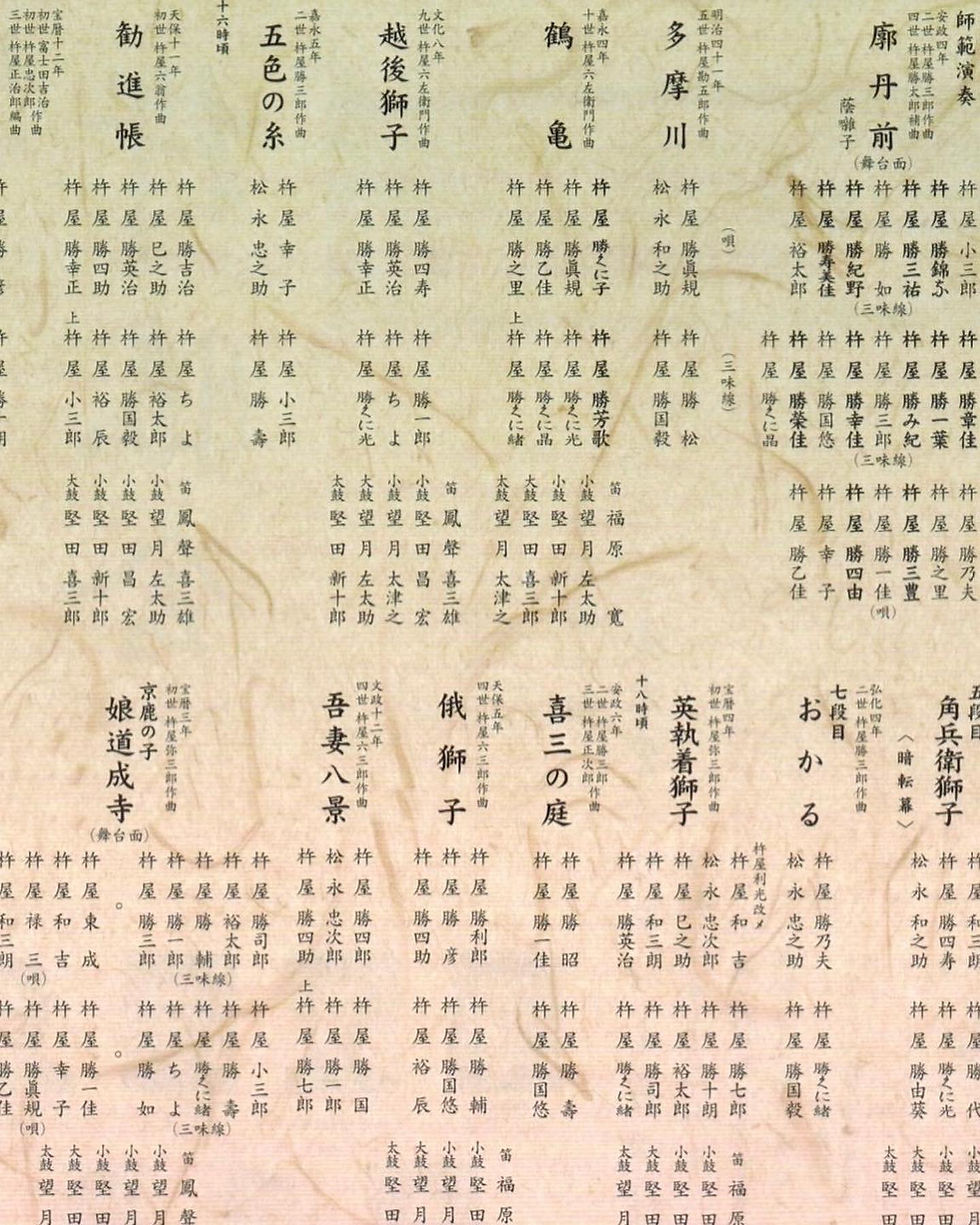 師範演奏
安政四年
二世 杵屋勝三郎作曲
四世 杵屋勝太郎補曲
廓丹前
蔭囃子
(舞台面)
杵屋 小三郎
杵屋 勝錦
杵屋 勝三祐
杵屋 勝如
杵屋 勝紀野
杵屋 勝寿美佳
杵屋 裕太郎
(三味線)
杵屋 勝章佳
杵屋 勝一葉
杵屋 勝み紀
杵屋 勝三郎
杵屋 勝幸佳
杵屋 勝国悠
杵屋 勝榮佳
杵屋 勝くに晶
(三味線)
杵屋 勝乃夫
杵屋 勝之里
杵屋 勝三豊
杵屋 勝一佳
杵屋 勝四由
杵屋 幸子
杵屋 勝乙佳
(唄)
明治四十一年
五世 杵屋勘五郎作曲
多摩川
(唄)
杵屋 勝眞規
松永 和之助
(三味線)
杵屋 勝松
杵屋 勝国毅
嘉永四年
十世 杵屋六左衛門作曲
鶴亀
杵屋 勝くに子
杵屋 勝眞規
杵屋 勝乙佳
杵屋 勝之里
杵屋 勝芳歌
杵屋 勝くに光
杵屋 勝くに晶
上 杵屋 勝くに緒
笛 福原 寛
小鼓 望月 左太助
小鼓 堅田 新十郎
大鼓 堅田 喜三郎
太鼓 望月 太津之
文化八年
九世 杵屋六左衛門作曲
越後獅子
杵屋 勝四寿
杵屋 勝英治
杵屋 勝幸正
杵屋 勝一郎
杵屋 ちよ
杵屋 勝くに光
笛 鳳聲 喜三雄
小鼓 堅田 昌宏
小鼓 望月 太津之
大鼓 望月 左太助
太鼓 堅田 新十郎
嘉永五年
二世 杵屋勝三郎作曲
五色の糸
杵屋 幸子
松永 忠之助
杵屋 小三郎
杵屋 勝壽
十六時頃
天保十一年
初世 杵屋六翁作曲
勧進帳
杵屋 勝吉治
杵屋 巳之助
杵屋 勝英治
杵屋 勝四助
杵屋 勝幸正
杵屋 ちよ
杵屋 裕太郎
杵屋 勝国毅
杵屋 裕辰
上 杵屋 小三郎
笛 鳳聲 喜三雄
小鼓 望月 左太助
小鼓 堅田 昌宏
小鼓 堅田 新十郎
大鼓 堅田 喜三郎
宝暦十二年
初世 富士田吉治
初世 杵屋忠次郎 作曲
三世 杵屋正治郎編曲
五段目
角兵衛獅子
杵屋 和三朗
杵屋 勝四寿
松永 和之助
杵屋 勝代
杵屋 勝くに光
杵屋 勝由葵
小鼓
小鼓 堅田
大鼓 堅田
太鼓 望月
〈暗転幕〉
弘化四年
二世 杵屋勝三郎作曲
七段目
おかる
杵屋 勝乃夫
松永 忠之助
杵屋 勝くに緒
杵屋 勝国毅
宝暦四年
初世 杵屋弥三郎作曲
英執着獅子
杵屋利光改メ
杵屋 和吉
松永 忠次郎
杵屋 巳之助
杵屋 和三朗
杵屋 勝英治
杵屋 勝七郎
杵屋 勝十朗
杵屋 裕太郎
杵屋 勝司郎
杵屋 勝くに緒
笛 福原
小鼓 堅田
小鼓 堅田
大鼓 堅田
太鼓 望月
十八時頃
安政六年
二世 杵屋勝三郎作曲
三世 杵屋正次郎作曲
喜三の庭
杵屋 勝昭
杵屋 勝一佳
杵屋 勝壽
杵屋 勝国悠
天保五年
四世 杵屋六三郎作曲
俄獅子
杵屋 勝利郎
杵屋 勝彦
杵屋 勝四助
杵屋 勝輔
杵屋 勝国悠
杵屋 裕辰
笛 福原
小鼓 堅田
小鼓 望月
大鼓 望月
太鼓 堅田
文政十二年
四世 杵屋六三郎作曲
吾妻八景
杵屋 勝四郎
松永 忠次郎
杵屋 勝四助
杵屋 勝国
杵屋 勝一郎
上 杵屋 勝七郎
宝暦三年
初世 杵屋弥三郎作曲
京鹿の子
娘道成寺
(舞台面)
杵屋 勝司郎
杵屋 裕太郎
杵屋 勝輔
杵屋 勝一郎
杵屋 勝三郎
(三味線)
杵屋 東成
杵屋 和吉
杵屋 禄三
杵屋 和三朗
(唄)
杵屋 小三郎
杵屋 勝壽
杵屋 勝くに緒
杵屋 ちよ
杵屋 勝如
(三味線)
杵屋 勝一佳
杵屋 幸子
杵屋 勝眞規
杵屋 勝乙佳
(唄)
笛 鳳聲
小鼓 望月
小鼓 望月
小鼓 堅田
大鼓 堅田
太鼓 望月